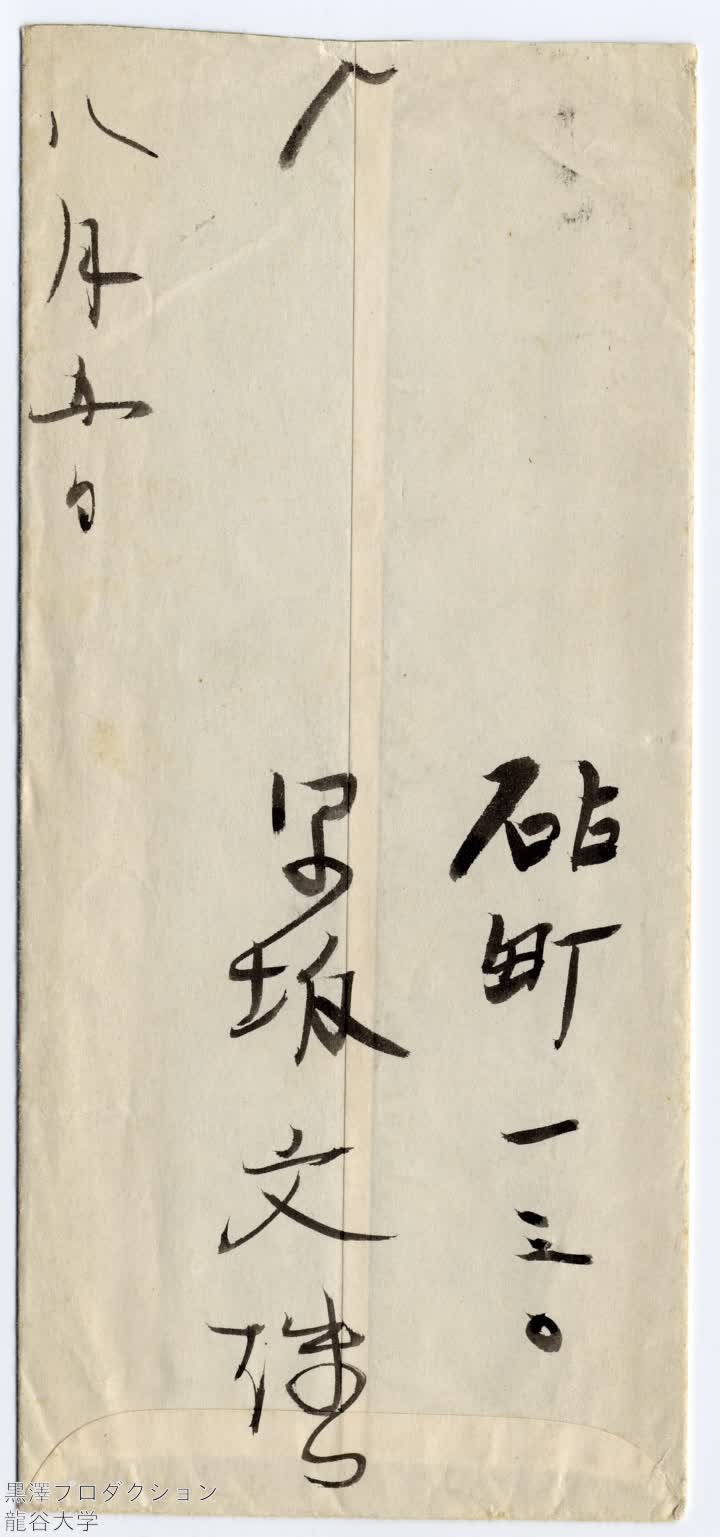 砧町一三〇
早坂文雄
八月五日
黒澤プロダクション
龍谷大学